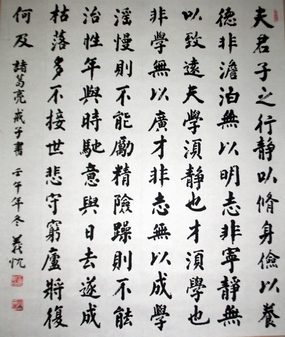 夫君子之行靜以脩身儉以養
德非澹泊無以明志非寧靜無
以致遠夫學須靜也才須學也
非學無以廣才非志無以成學
淫慢則不能勵精險躁則不能
治性年與時馳意與日去遂成
枯落多不接世悲守窮廬將復
何及 諸葛亮戒子書 壬午年冬